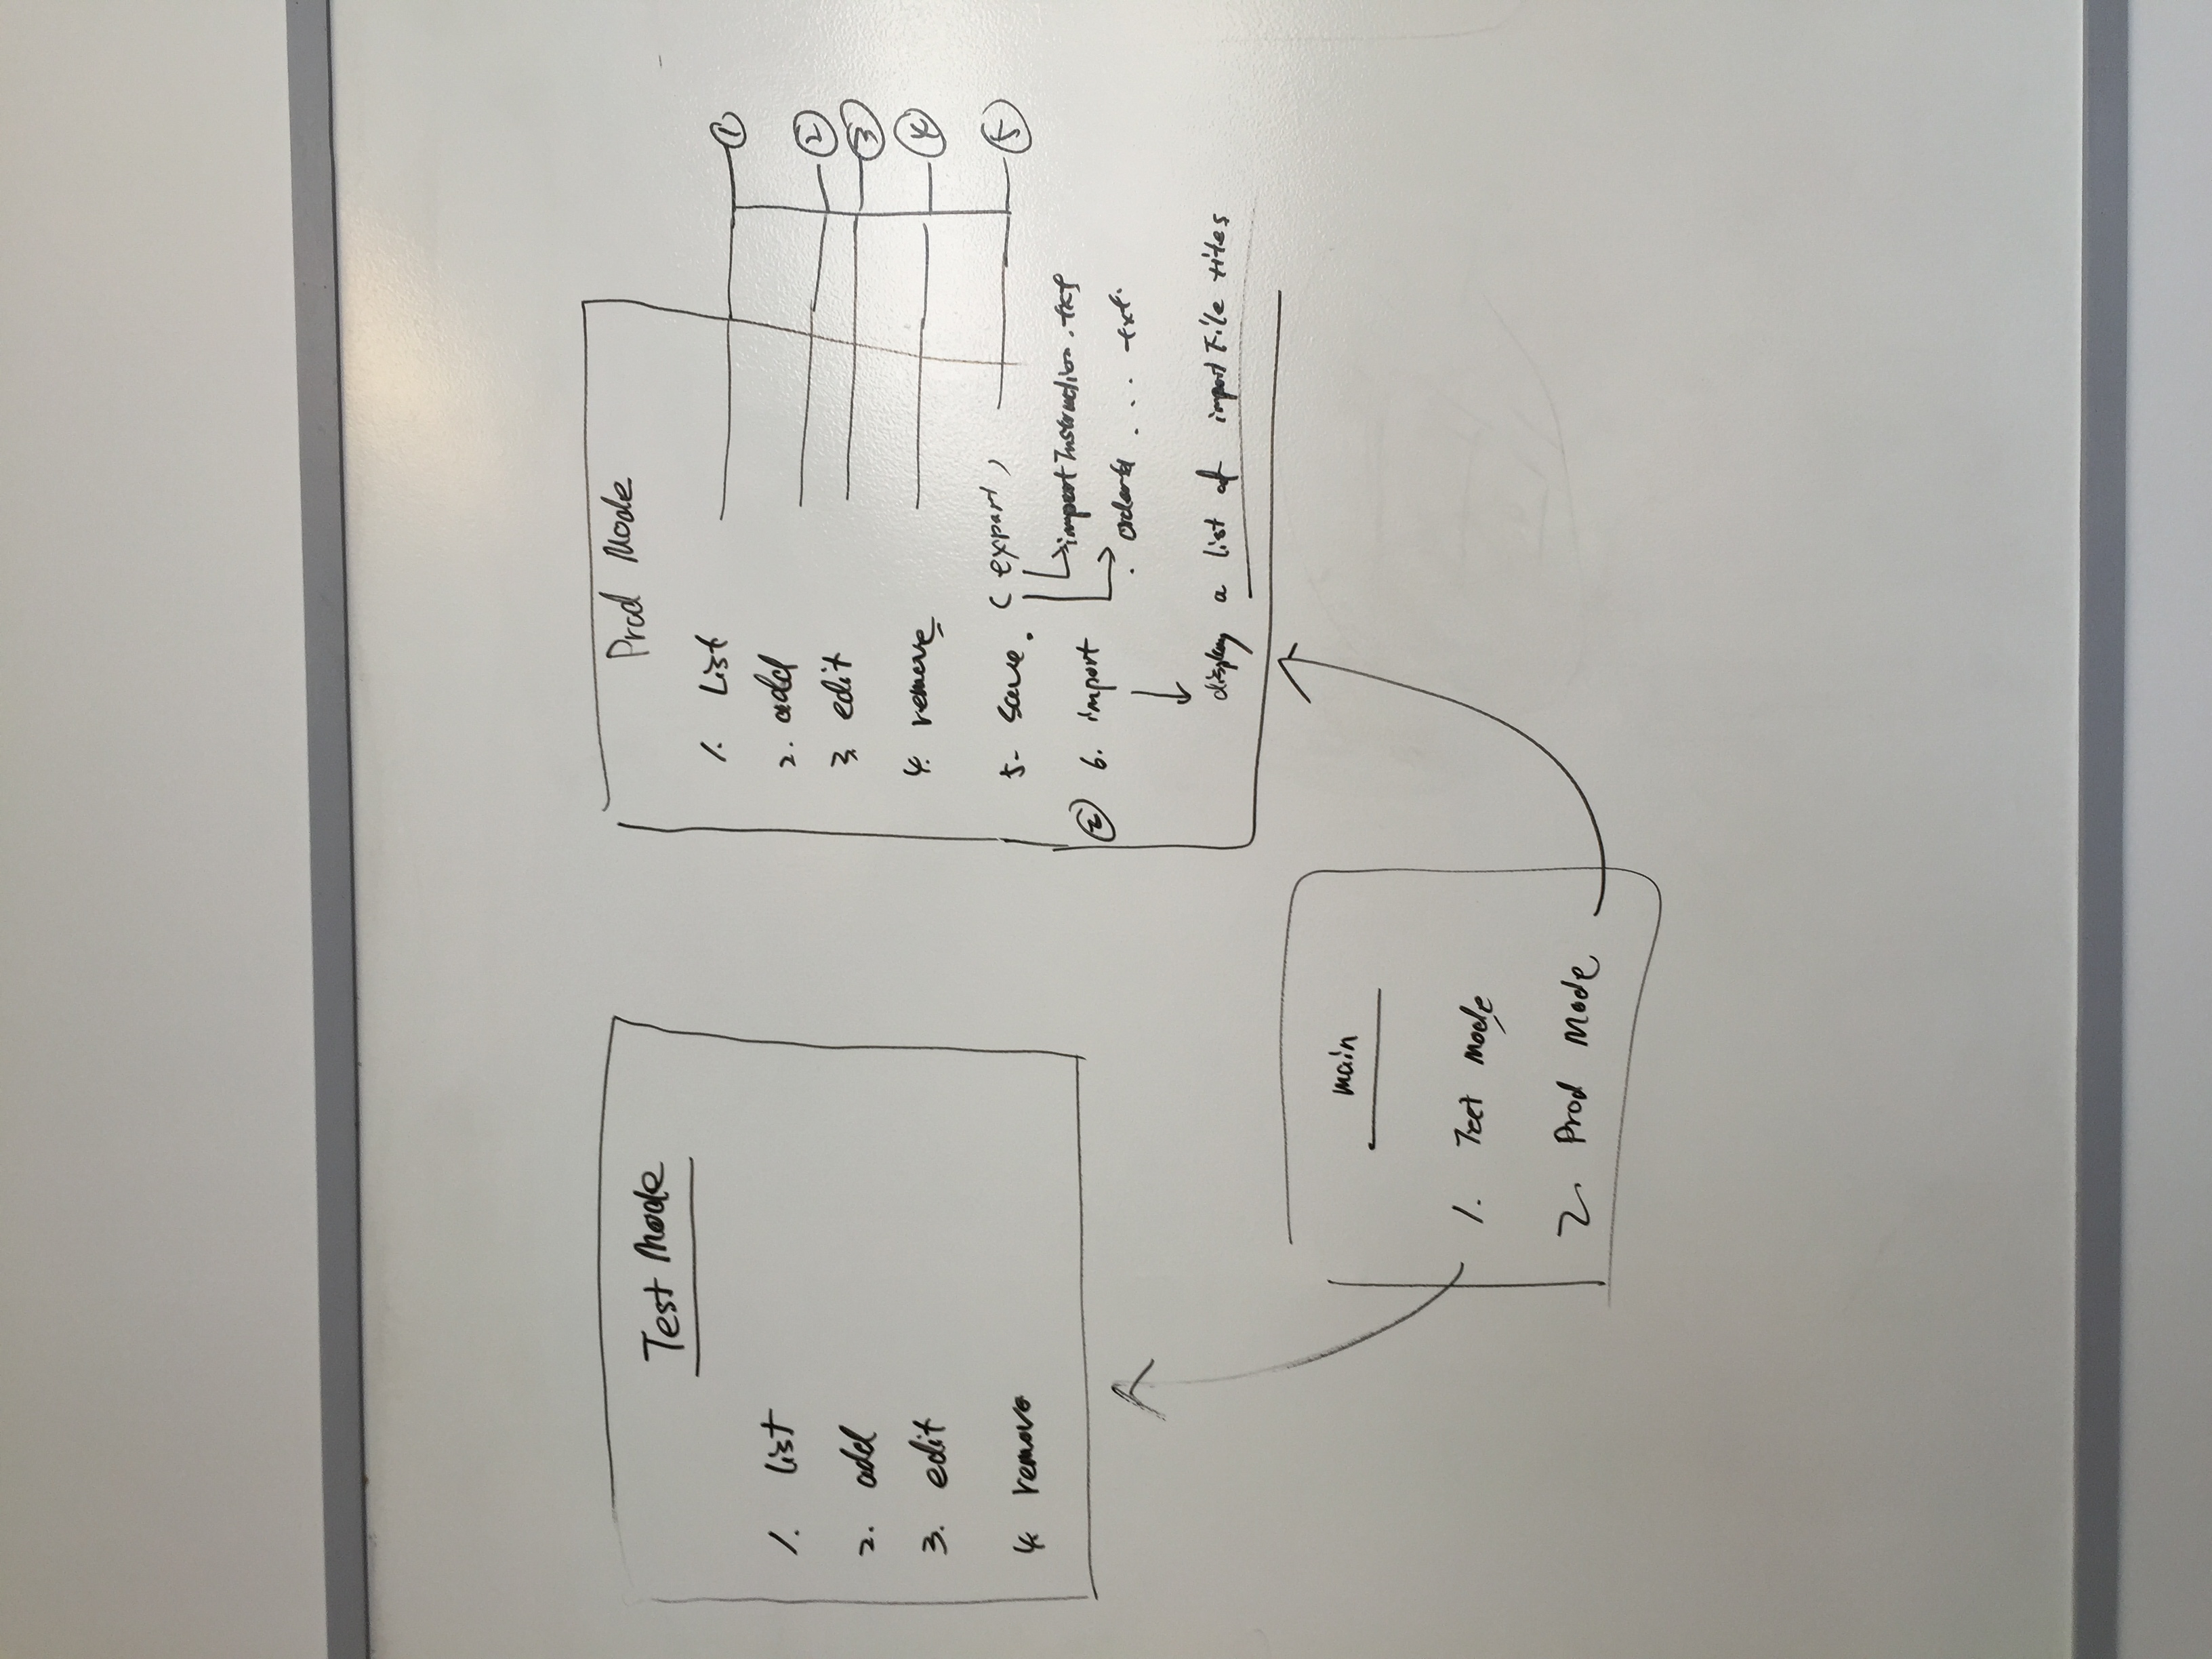 Test Mode
1. list
2. add
3. edit
4. remove
Prod Mode
1. List
2. add
3. edit
4. remove
5. save. (export)
importInstruction.txt
orderId ... txt.
② 6. import
display a list of importFile titles
①
②
③
④
⑤
main
1. Test mode
2. Prod Mode